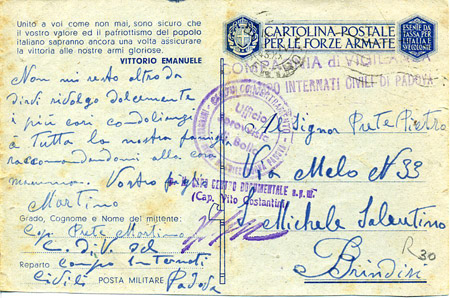 Unito a voi come non mai, sono sicuro che
il vostro valore ed il patriottismo del popolo
italiano sapranno ancora una volta assicurare
la vittoria alle nostre armi gloriose.
VITTORIO EMANUELE
Non mi resto altro da
dirti rivolgo dolcemente
i più cari
a tutta la nostra famiglia
raccomandandomi alla cara
mamma. Vostro figlio
Martino
Grado, Cognome e Nome del mittente:
Cap. Prete Martino
Reparto Campo Internati
Civili POSTA MILITARE Padova
CARTOLINA POSTALE
PER LE FORZE ARMATE
ESENTE DA
TASSA PER
L'ITALIA E
INTERNATI CIVILI DI PADOVA
Ufficio
Bolli
(Cap. Vito Costantini)
Al Signor Prete Pietro
Via Melo N 33
S. Michele Salentino
Brindisi
R 30